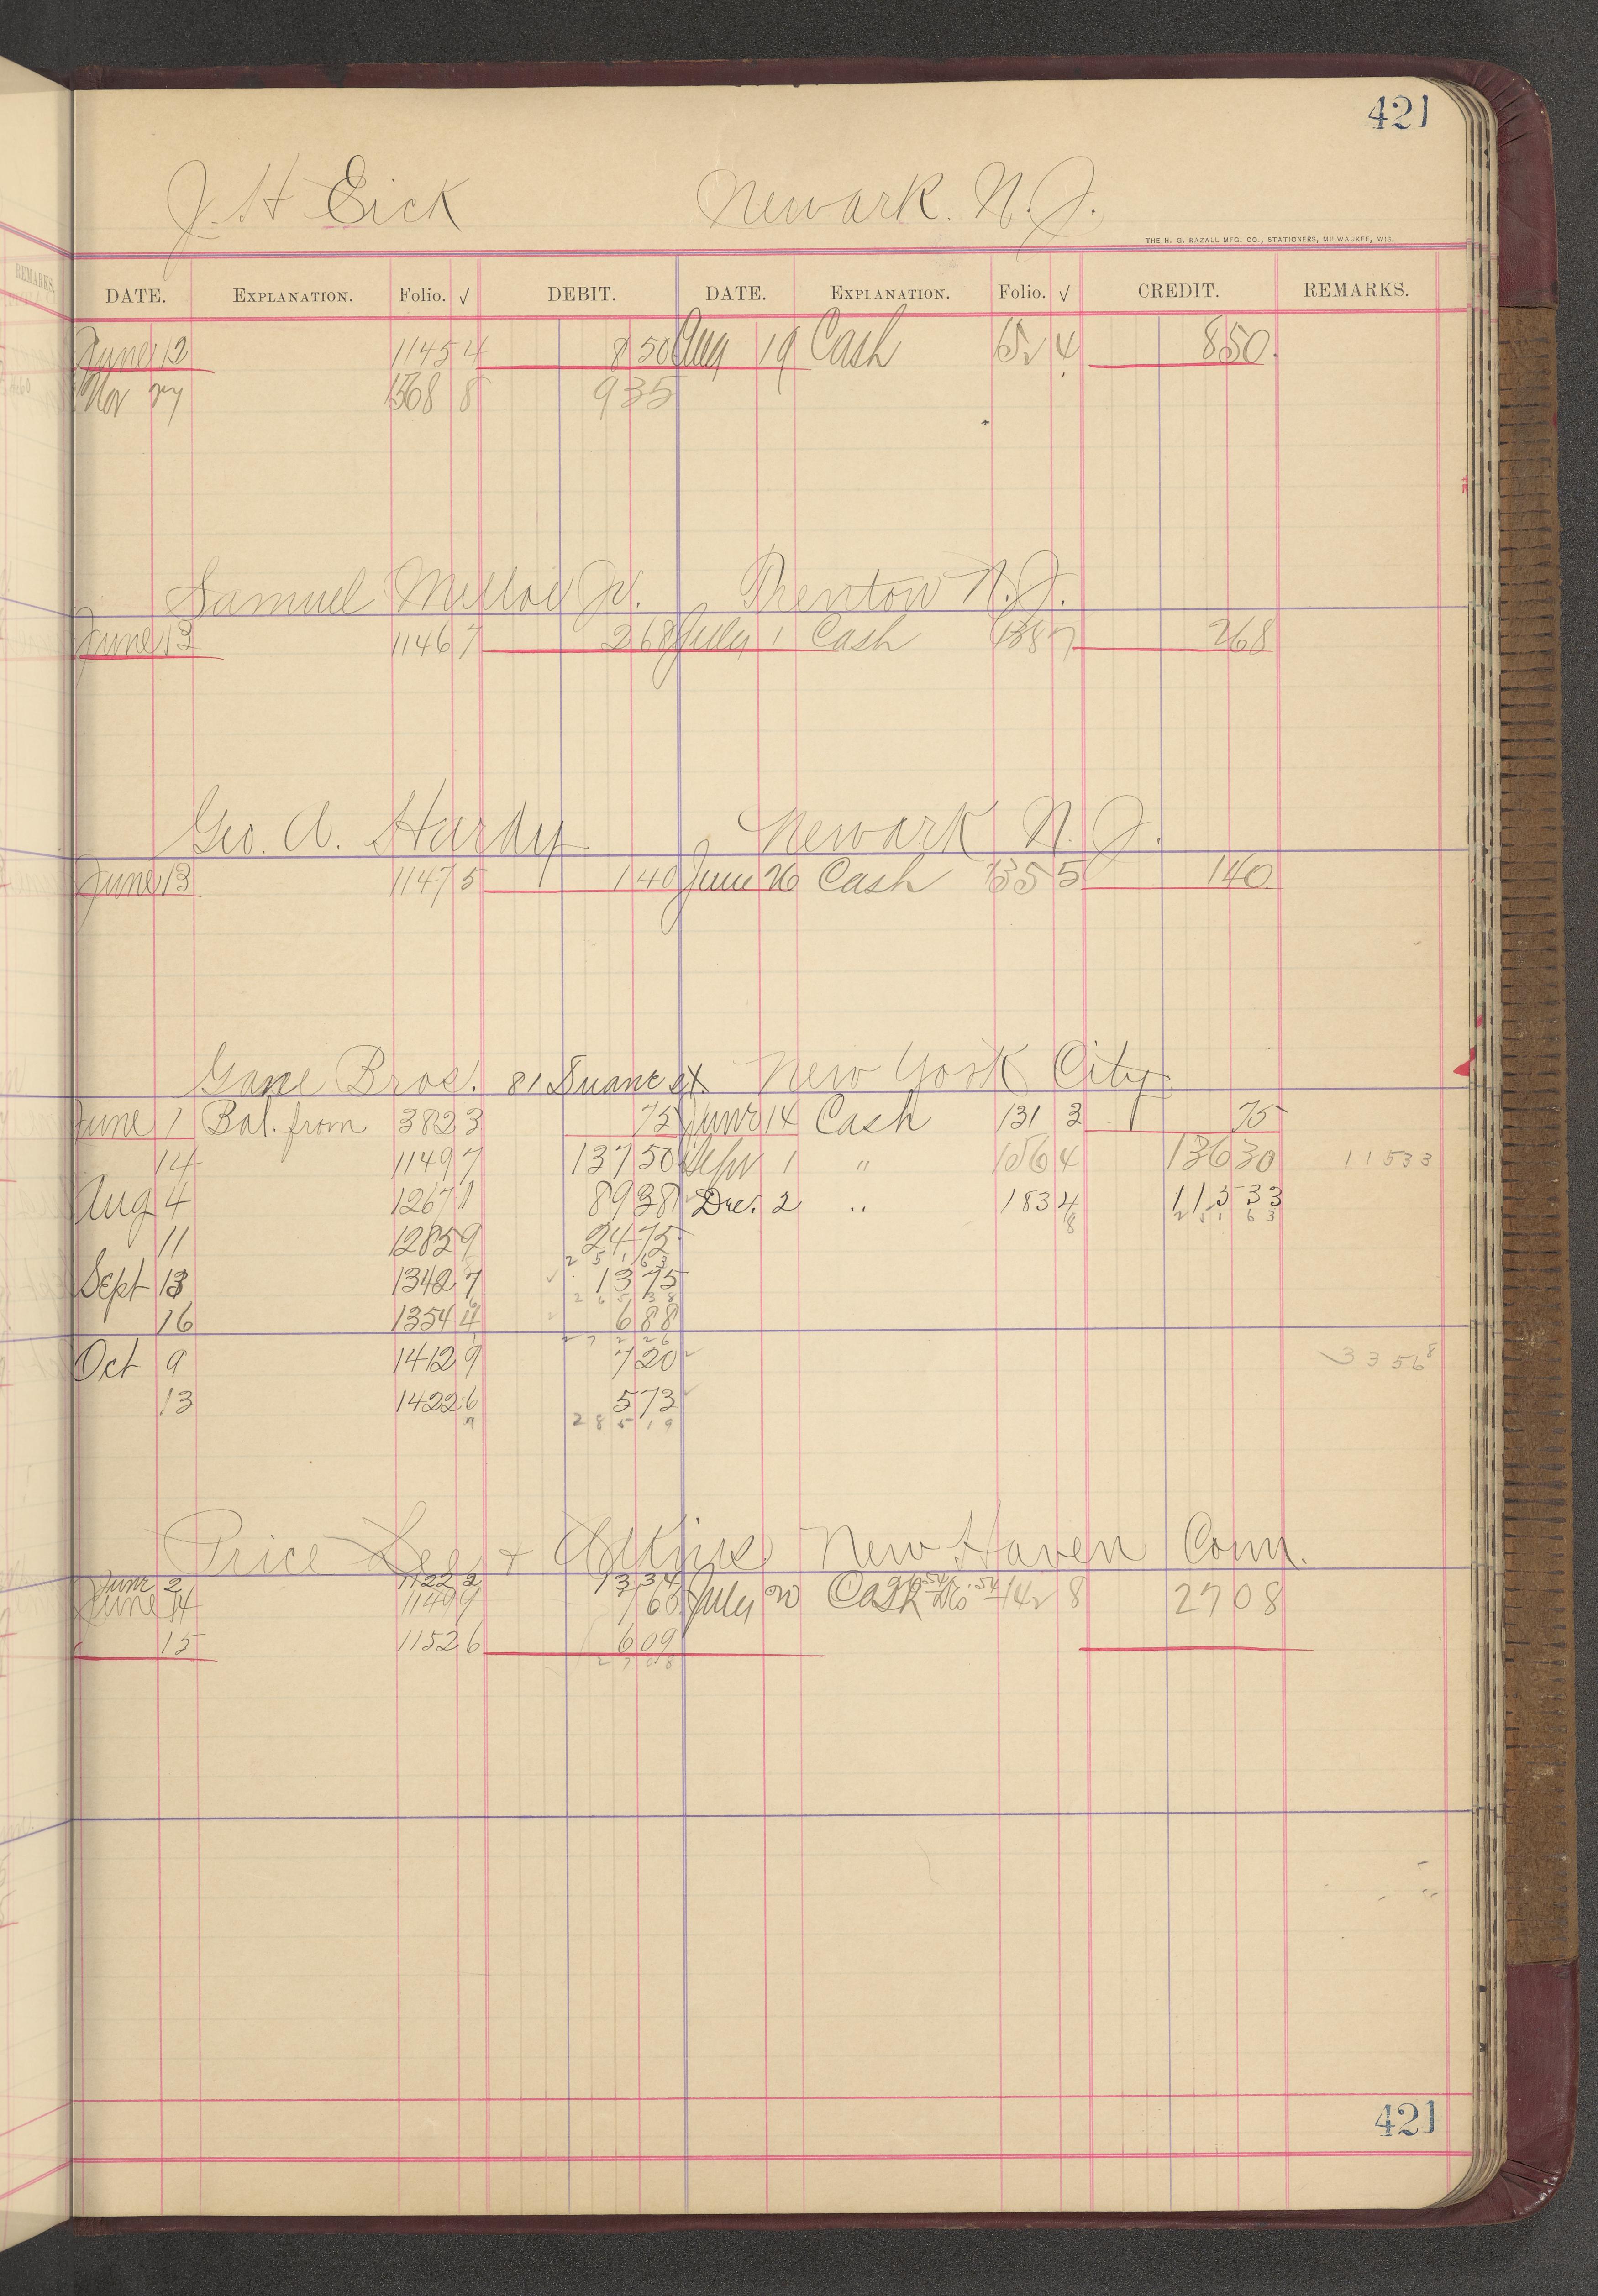 421
J. H Eick Newark. N. J.
THE H. G. RAZALL MFG. CO., STATIONERS, MILWAUKEE, WIS.
DATE. EXPLANATION. Folio. √ DEBIT. DATE. EXPLANATION. Folio. √ CREDIT. REMARKS.
June 12 1145 4 8 50 Aug 19 Cash 152 4 8 50.
Nov 27 1568 8 9 35
Samuel Jr. Trenton N. J.
June 13 1146 7 2 68 July 1 Cash 138 7 2 68
Geo. A. Hardy Newark N. J.
June 13 1147 5 1 40 June 26 Cash 135 5 1 40
Gane Bros. 81 Duane st. New York City
June 1 Bal. from 382 3 75 June 14 Cash 131 3 75
14 1149 7 137 50 Sep 1 " 156 4 136 30 11533
Aug 4 1267 1 89 38 Dec. 2 " 183 4 115 33
8 251 63
11 1285 9 24 75
251 63
Sept 13 1342 7 13 75
265 38
16 1354 4 6 88
272 26
Oct 9 1412 9 7 20 3356 8
13 1422 6 5 73
285 19
Price Lee & Adkins New Haven Conn.
June 2 1122 2 13 34
June 14 1149 9 7 65 July 20 Cash 142 8 27 08
15 1152 6 6 09
27 08
421